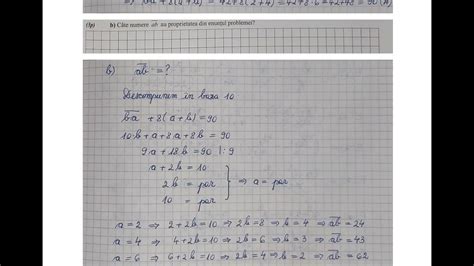 ⇒ ba + 8(a+b) = 42+8(2+4) = 42+8·6 = 42+48 = 90 (A)
(3p) b) Câte numere ab au proprietatea din enunțul problemei?
b) ab = ?
Descompunem în baza 10
ba + 8(a+b) = 90
10·b + a + 8·a + 8b = 90
9·a + 18b = 90 |:9
a + 2b = 10
2b = par
10 = par
⇒ a = par
a = 2 ⇒ 2 + 2b = 10 ⇒ 2b = 8 ⇒ b = 4 ⇒ ab = 24
a = 4 ⇒ 4 + 2b = 10 ⇒ 2b = 6 ⇒ b = 3 ⇒ ab = 43
a = 6 ⇒ 6 + 2b = 10 ⇒ 2b = 4 ⇒ b = 2 ⇒ ab = 62